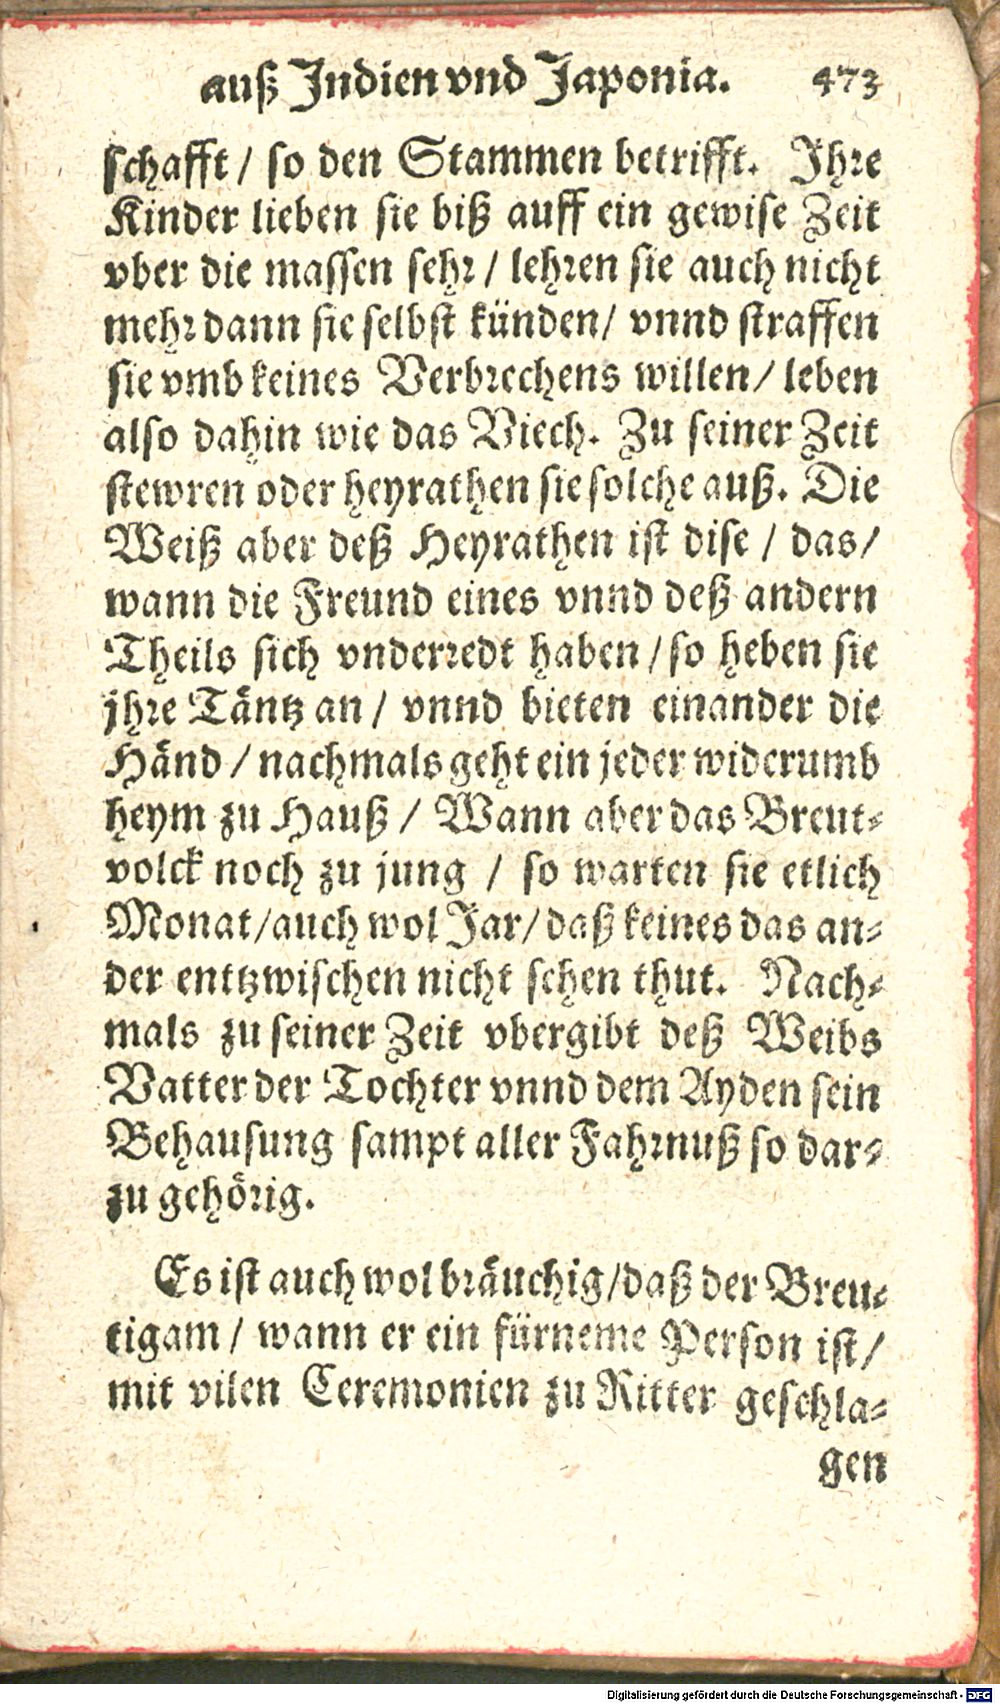 auß Indien vnd Japonia. 473
schafft / so den Stammen betrifft. Ihre
Kinder lieben sie biß auff ein gewise Zeit
vber die massen sehr / lehren sie auch nicht
mehr dann sie selbst künden / vnnd straffen
sie vmb keines Verbrechens willen / leben
also dahin wie das Viech. Zu seiner Zeit
stewren oder heyrathen sie solche auß. Die
Weiß aber deß Heyrathen ist dise / das /
wann die Freund eines vnnd deß andern
Theils sich vnderredt haben / so heben sie
jhre Täntz an / vnnd bieten einander die
Händ / nachmals geht ein jeder widerumb
heym zu Hauß / Wann aber das Breut-
volck noch zu jung / so warten sie etlich
Monat / auch wol Jar / daß keines das an-
der entzwischen nicht sehen thut. Nach-
mals zu seiner Zeit vbergibt deß Weibs
Vatter der Tochter vnnd dem Ayden sein
Behausung sampt aller Fahrnuß so dar-
zu gehörig.
Es ist auch wol bräuchig / daß der Breu-
tigam / wann er ein fürneme Person ist /
mit vilen Ceremonien zu Ritter geschla-
gen
Digitalisierung gefördert durch die Deutsche Forschungsgemeinschaft - DFG